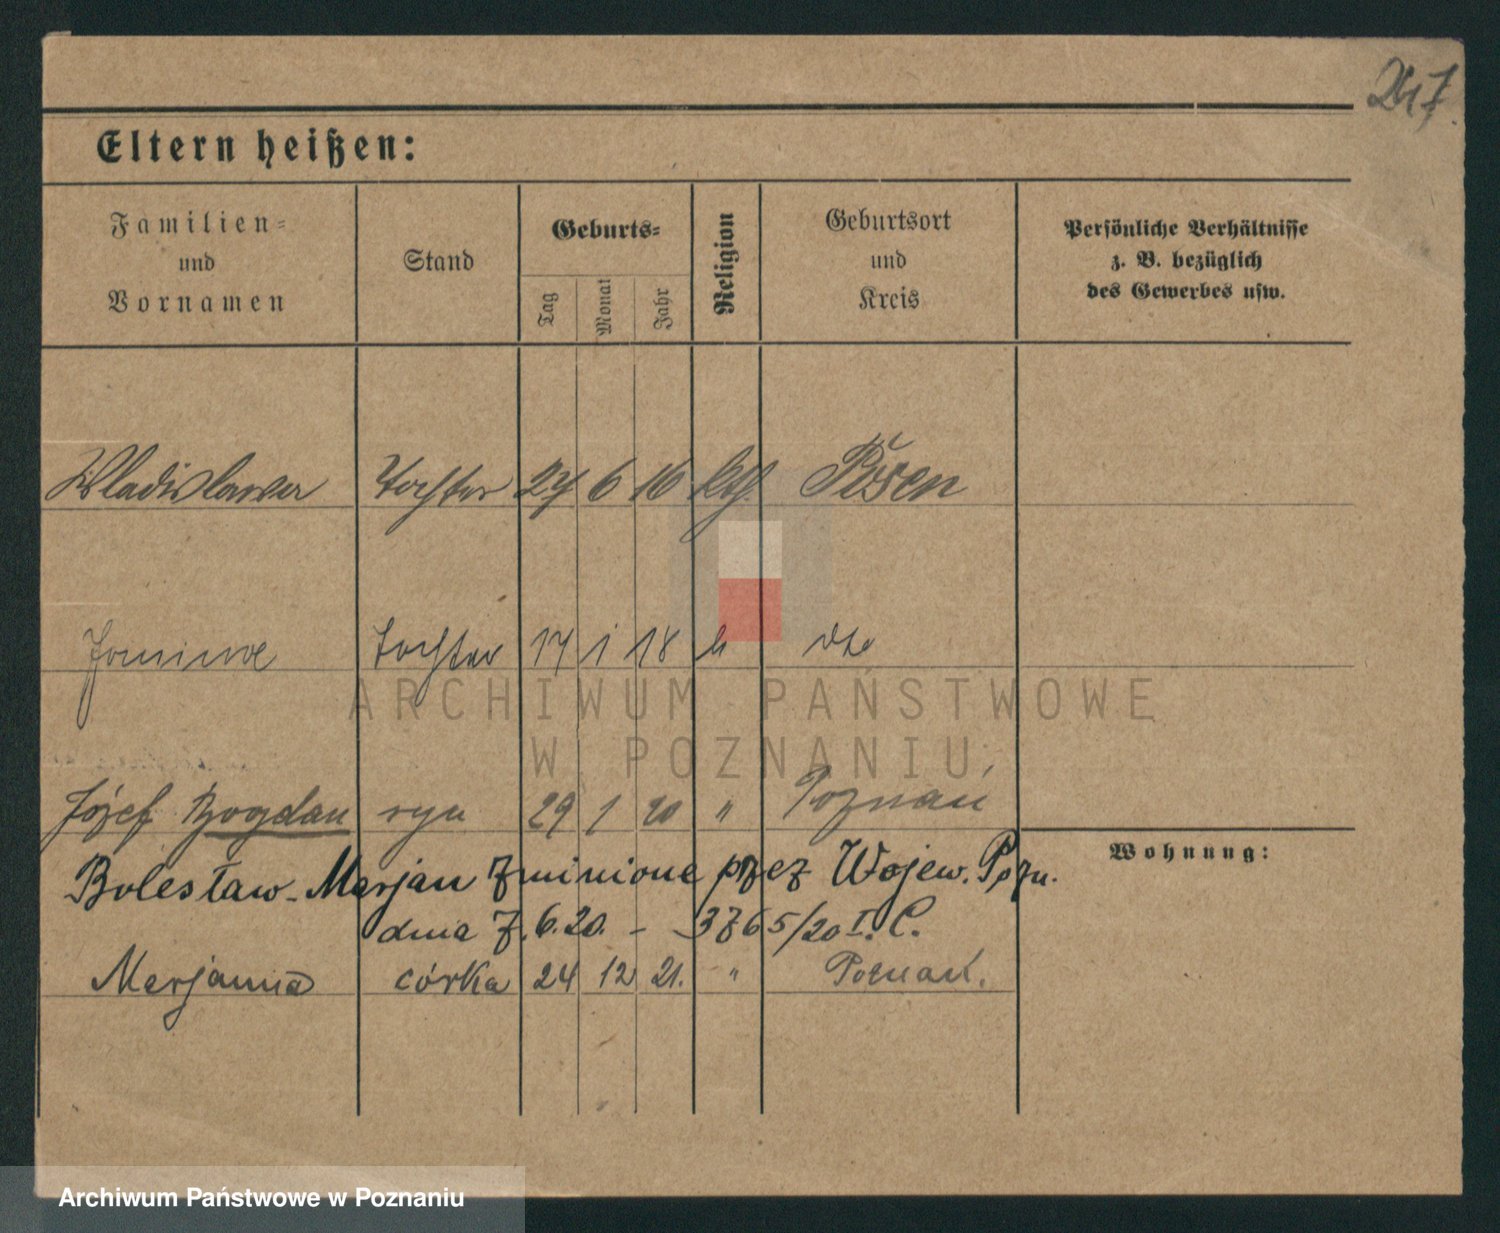 247.
Eltern heißen:
Familien-
und
Vornamen
Stand
Geburts-
Tag
Monat
Jahr
Religion
Geburtsort
und
Kreis
Persönliche Verhältnisse
z. B. bezüglich
des Gewerbes usw.
Wladislawa Tochter 24 6 16 kth. Posen
Tochter 17 1 18 dto
ARCHIWUM PAŃSTWOWE
W POZNANIU
Józef Bogdan syn 29 1 20 " Poznań
Bolesław-Marjan zminione przez Wojew. Pozn.
dnia 7.6.20. - 3765/20 I. C.
Wohnung:
Marjanna córka 24 12 21. " Poznań.
Archiwum Państwowe w Poznaniu